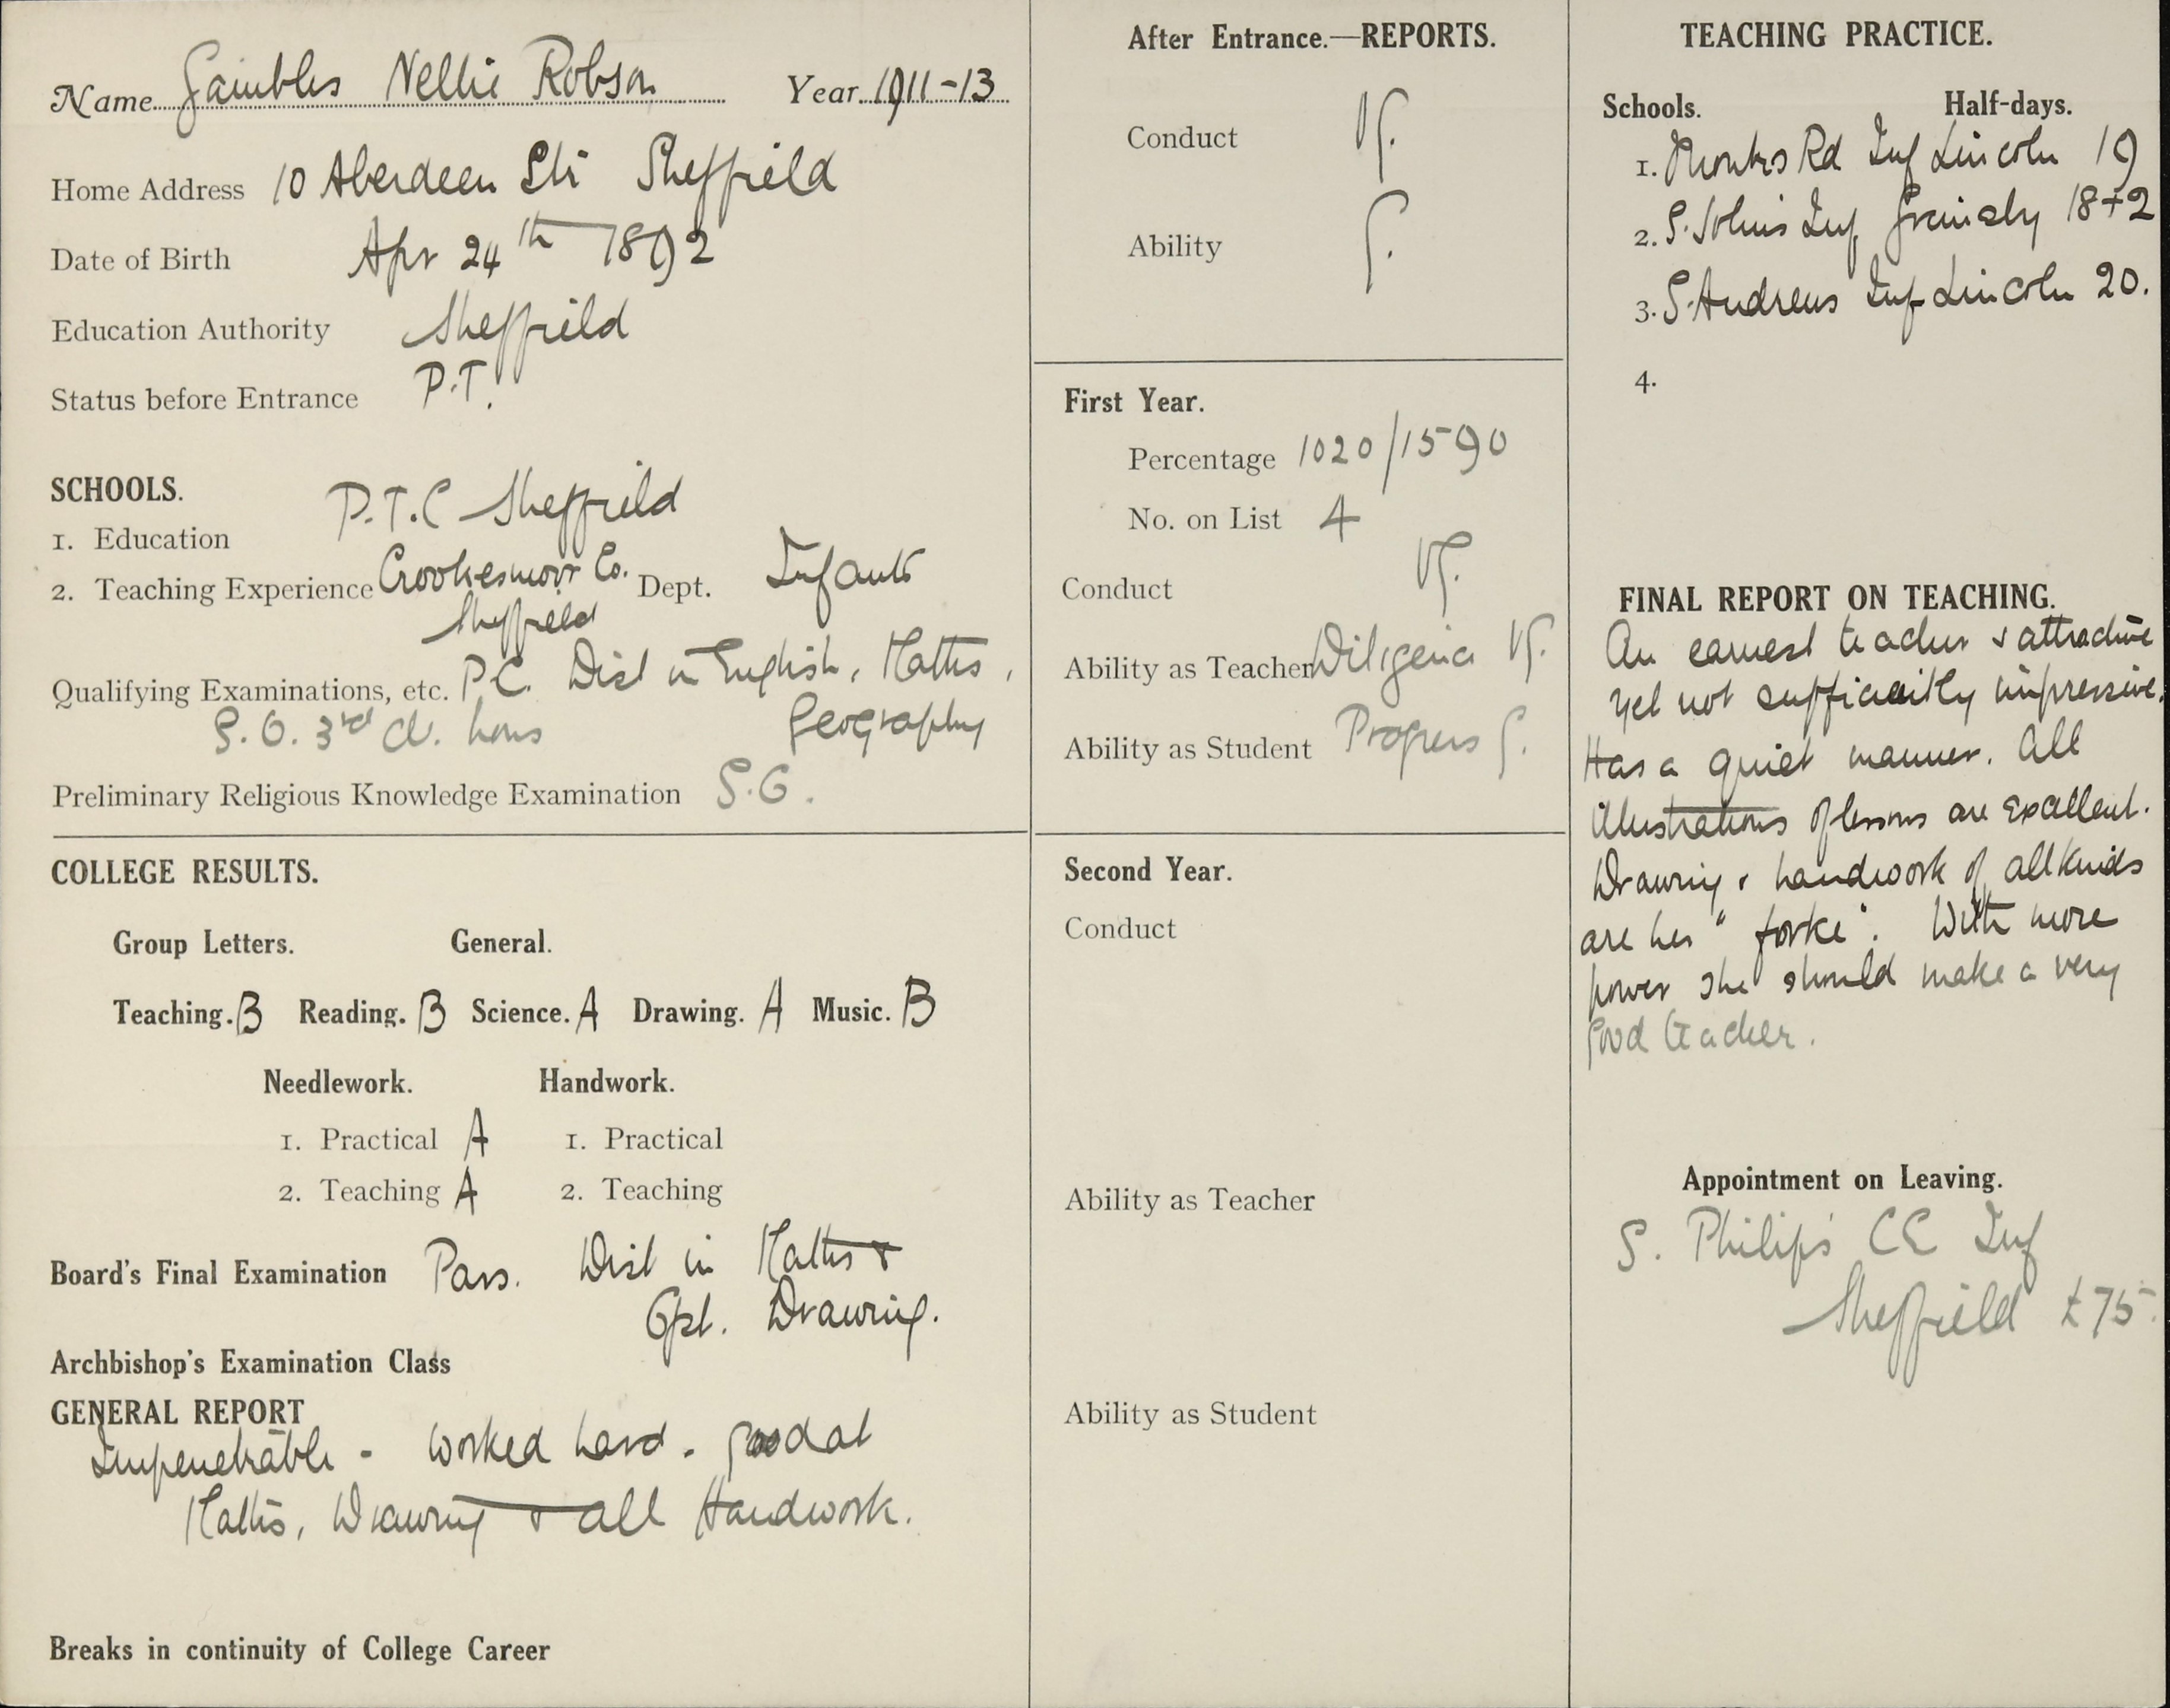 Name Gambles Nellie Robson Year 1911-13
Home Address 10 Aberdeen Str Sheffield
Date of Birth Apr 24th 1892
Education Authority Sheffield
Status before Entrance P.T.
SCHOOLS.
1. Education P.T.C Sheffield
2. Teaching Experience Crookesmoor Co. Dept. Infants
Sheffield
Qualifying Examinations, etc. P.C. Dist in English, Maths,
3rd cl. hons Geography
Preliminary Religious Knowledge Examination
COLLEGE RESULTS.
Group Letters. General.
Teaching. B Reading. B Science. A Drawing. A Music. B
Needlework. Handwork.
1. Practical A 1. Practical
2. Teaching A 2. Teaching
Board's Final Examination Pass. Dist in Maths &
Drawing.
Archbishop's Examination Class
GENERAL REPORT
Impenetrable - worked hard - good at
Maths, Drawing & all Handwork.
Breaks in continuity of College Career
After Entrance.—REPORTS.
Conduct VG.
Ability G.
First Year.
Percentage 1020/1590
No. on List 4
Conduct VG.
Ability as Teacher Diligence VG.
Ability as Student Progress G.
Second Year.
Conduct
Ability as Teacher
Ability as Student
TEACHING PRACTICE.
Schools. Half-days.
1. Monks Rd Inf Lincoln 19
2. S. Johns Inf Grimsby 18+2
3. S. Andrews Inf Lincoln 20.
4.
FINAL REPORT ON TEACHING.
An earnest teacher & attractive
yet not sufficiently impressive.
Has a quiet manner. All
illustrations of lessons are excellent.
Drawing & handwork of all kinds
are her "forte". With more
power she should make a very
good teacher.
Appointment on Leaving.
S. Philip's CE Inf
Sheffield £75